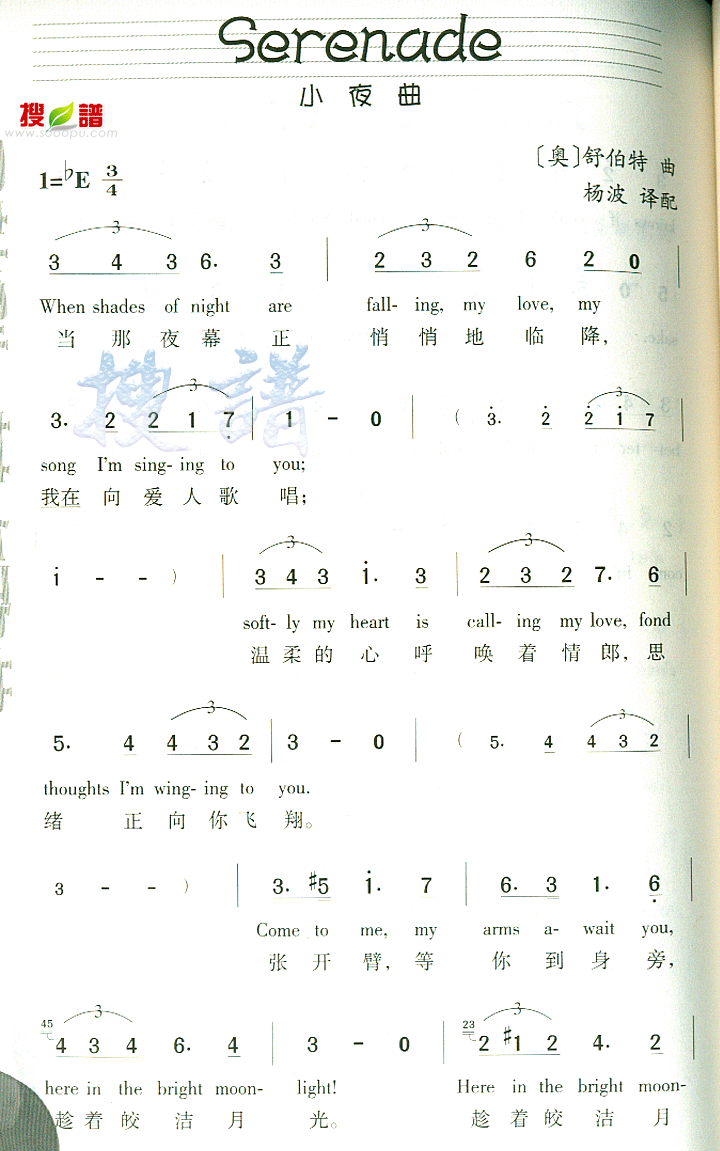 Serenade
小夜曲
搜谱
www.sooopu.com
1=♭E 3/4
〔奥〕舒伯特 曲
杨波 译配
3
3
3 4 3 6. 3 | 2 3 2 6 2 0 |
When shades of night are fall- ing, my love, my
当 那 夜 幕 正 悄 悄 地 临 降,
搜谱
3
3
3. 2 2 1 7 | 1 - 0 | ( 3. 2 2 1 7 |
song I'm sing- ing to you;
我在 向 爱 人 歌 唱;
3
3
i - - ) | 3 4 3 1. 3 | 2 3 2 7. 6 |
soft- ly my heart is call- ing my love, fond
温 柔 的 心 呼 唤 着 情 郎, 思
3
3
5. 4 4 3 2 | 3 - 0 | ( 5. 4 4 3 2 |
thoughts I'm wing- ing to you.
绪 正 向 你 飞 翔。
3 - - ) | 3. #5 1. 7 | 6. 3 1. 6 |
Come to me, my arms a- wait you,
张 开 臂, 等 你 到 身 旁,
45 3
23 3
4 3 4 6. 4 | 3 - 0 | 2 #1 2 4. 2 |
here in the bright moon- light! Here in the bright moon-
趁 着 皎 洁 月 光。 趁 着 皎 洁 月